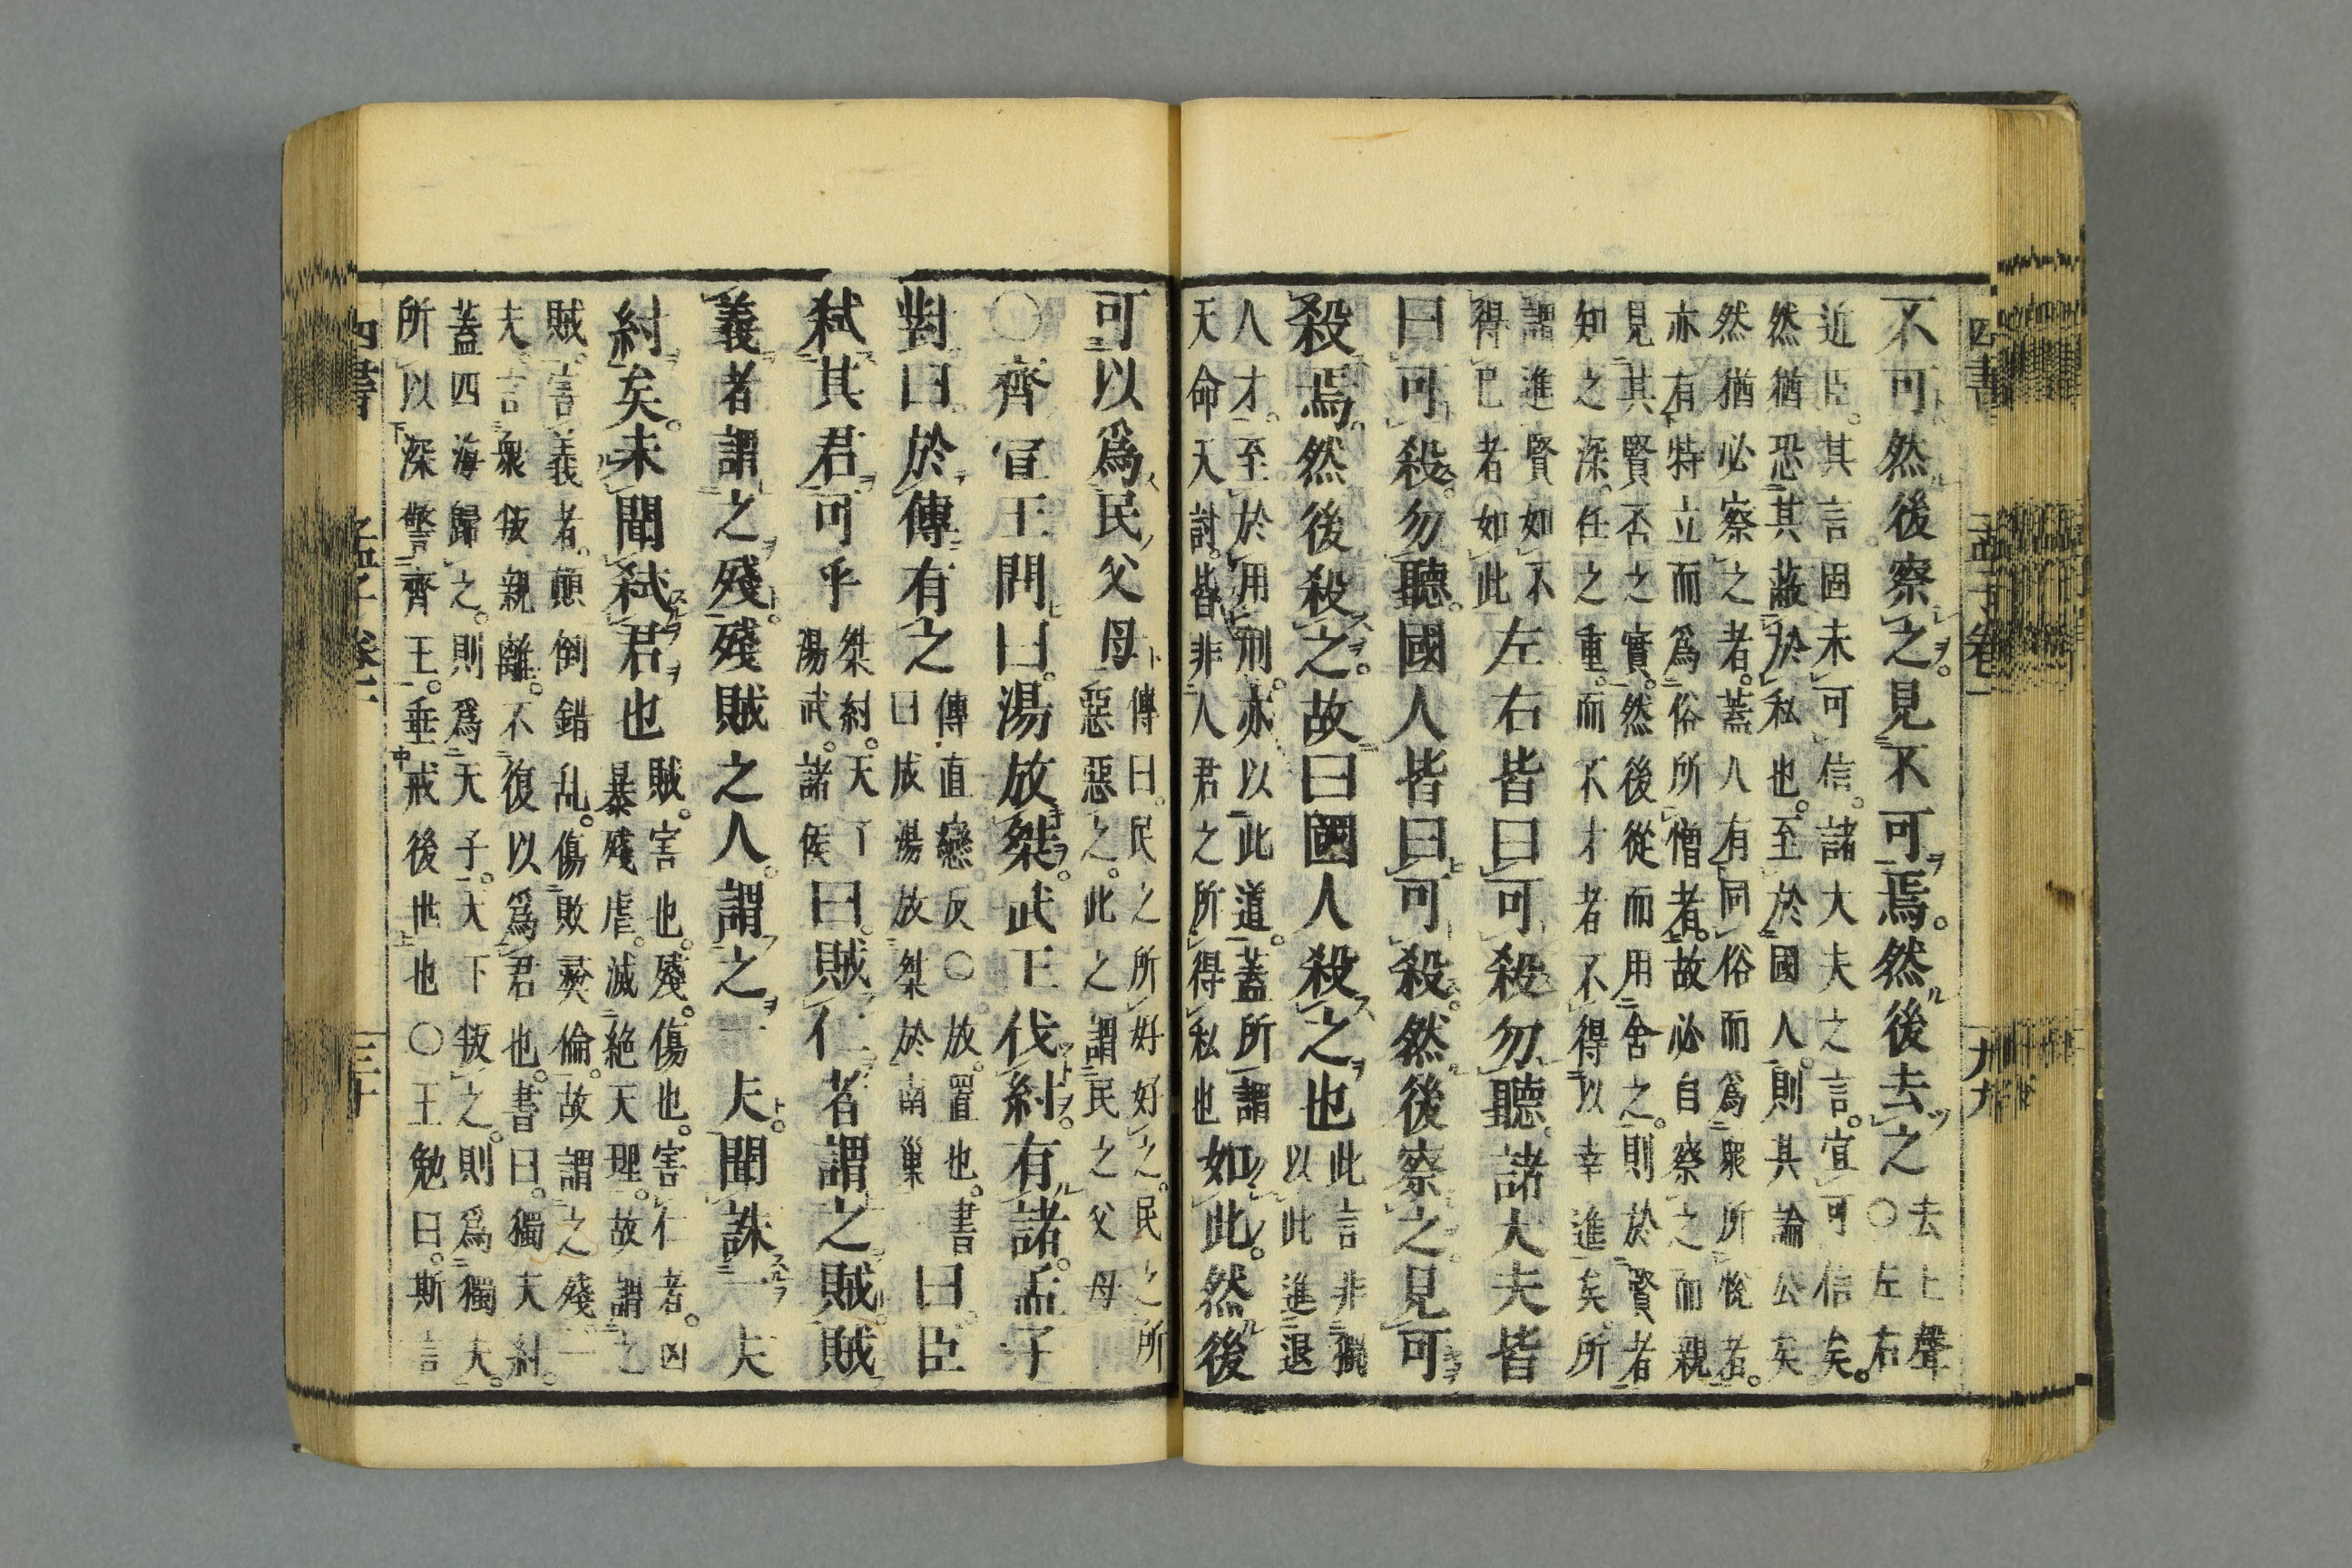 四書 孟子卷一 九
不可然後察之見不可焉然後去之 去上聲
○左右
近臣其言固未可信諸大夫之言宜可信矣
然猶恐其蔽於私也至於國人則其論公矣
然猶必察之者蓋人有同俗而爲衆所悅者
亦有特立而爲俗所憎者故必自察之而親
見其賢否之實然後從而用舍之則於賢者
知之深任之重而不才者不得以幸進矣所
謂進賢如不
得已者如此 左右皆曰可殺勿聽諸大夫皆
曰可殺勿聽國人皆曰可殺然後察之見可
殺焉然後殺之故曰國人殺之也 此言非獨
以此進退
人才至於用刑亦以此道蓋所謂
天命天討皆非人君之所得私也 如此然後
可以爲民父母 傳曰民之所好好之民之所
惡惡之此之謂民之父母
○齊宣王問曰湯放桀武王伐紂有諸孟子
對曰於傳有之 傳直戀反○放置也書
曰成湯放桀於南巢 曰臣
弑其君可乎 桀紂天子
湯武諸侯 曰賊仁者謂之賊賊
義者謂之殘殘賊之人謂之一夫聞誅一夫
紂矣未聞弑君也 賊害也殘傷也害仁者凶
暴殘虐滅絶天理故謂之
賊害義者顛倒錯乱傷敗彛倫故謂之殘一
夫言衆叛親離不復以爲君也書曰獨夫紂
蓋四海歸之則爲天子天下叛之則爲獨夫
所以深警齊王垂戒後世也○王勉曰斯言
四書 孟子卷一 三十